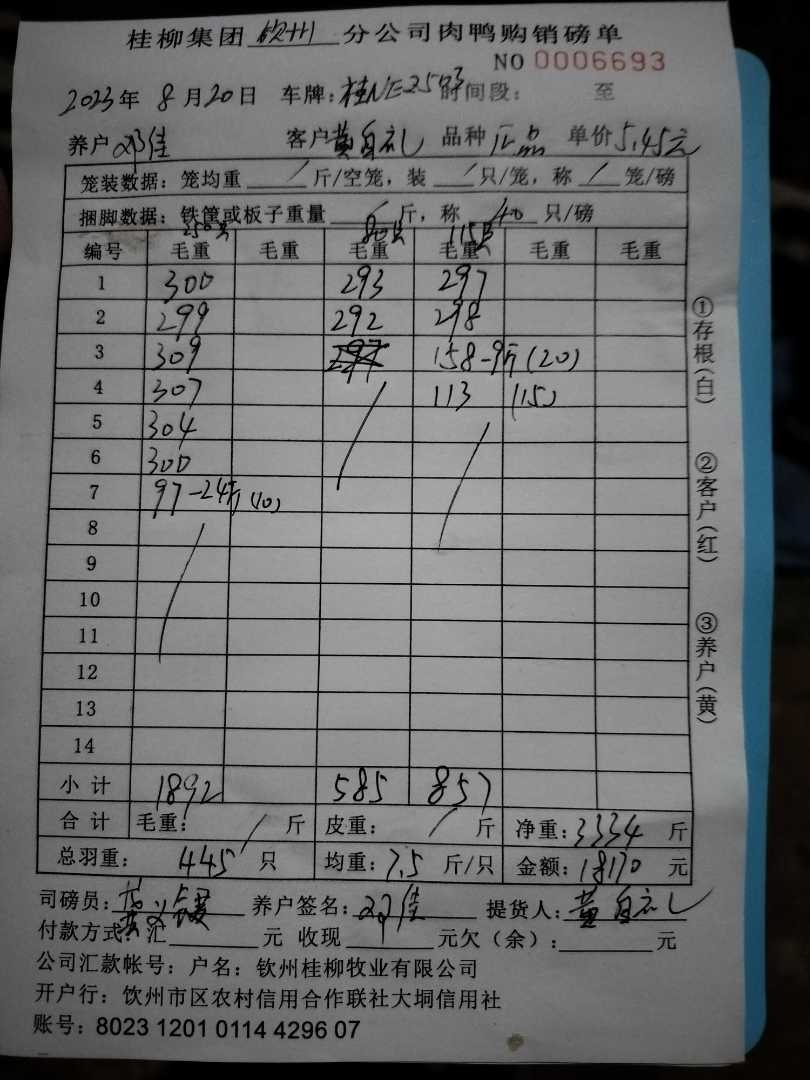 桂柳集团 钦州 分公司肉鸭购销磅单
NO 0006693
2023年 8月20日 车牌：桂NE2503 时间段： 至
养户 邓佳 客户 黄自礼 品种 正品 单价 5.45元
笼装数据：笼均重 / 斤/空笼，装 / 只/笼，称 / 笼/磅
捆脚数据：铁筐或板子重量 / 斤，称 40 只/磅
250只 80只 115只
编号 毛重 毛重 毛重 毛重 毛重 毛重
1 300 293 297
2 299 292 298
3 309 158-9斤(20)
4 307 113 (15)
5 304
6 300
7 97-24斤(10)
8
9
10
11
12
13
14
小计 1892 585 857
合计 毛重： / 斤 皮重： / 斤 净重：3334 斤
总羽重： 445 只 均重：7.5 斤/只 金额：18170 元
司磅员： 养户签名：邓佳 提货人：黄自礼
付款方式：汇 元 收现 元欠（余）： 元
公司汇款帐号：户名：钦州桂柳牧业有限公司
开户行：饮州市区农村信用合作联社大垌信用社
账号：8023 1201 0114 4296 07
①存根(白)
②客户(红)
③养户(黄)